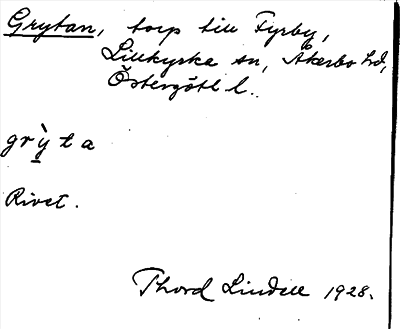 Grytan, torp till Fyrby,
Lillkyrka sn, Åkerbo hd,
Östergötl l.
grỳta
Rivet.
Thord Lindell 1928.